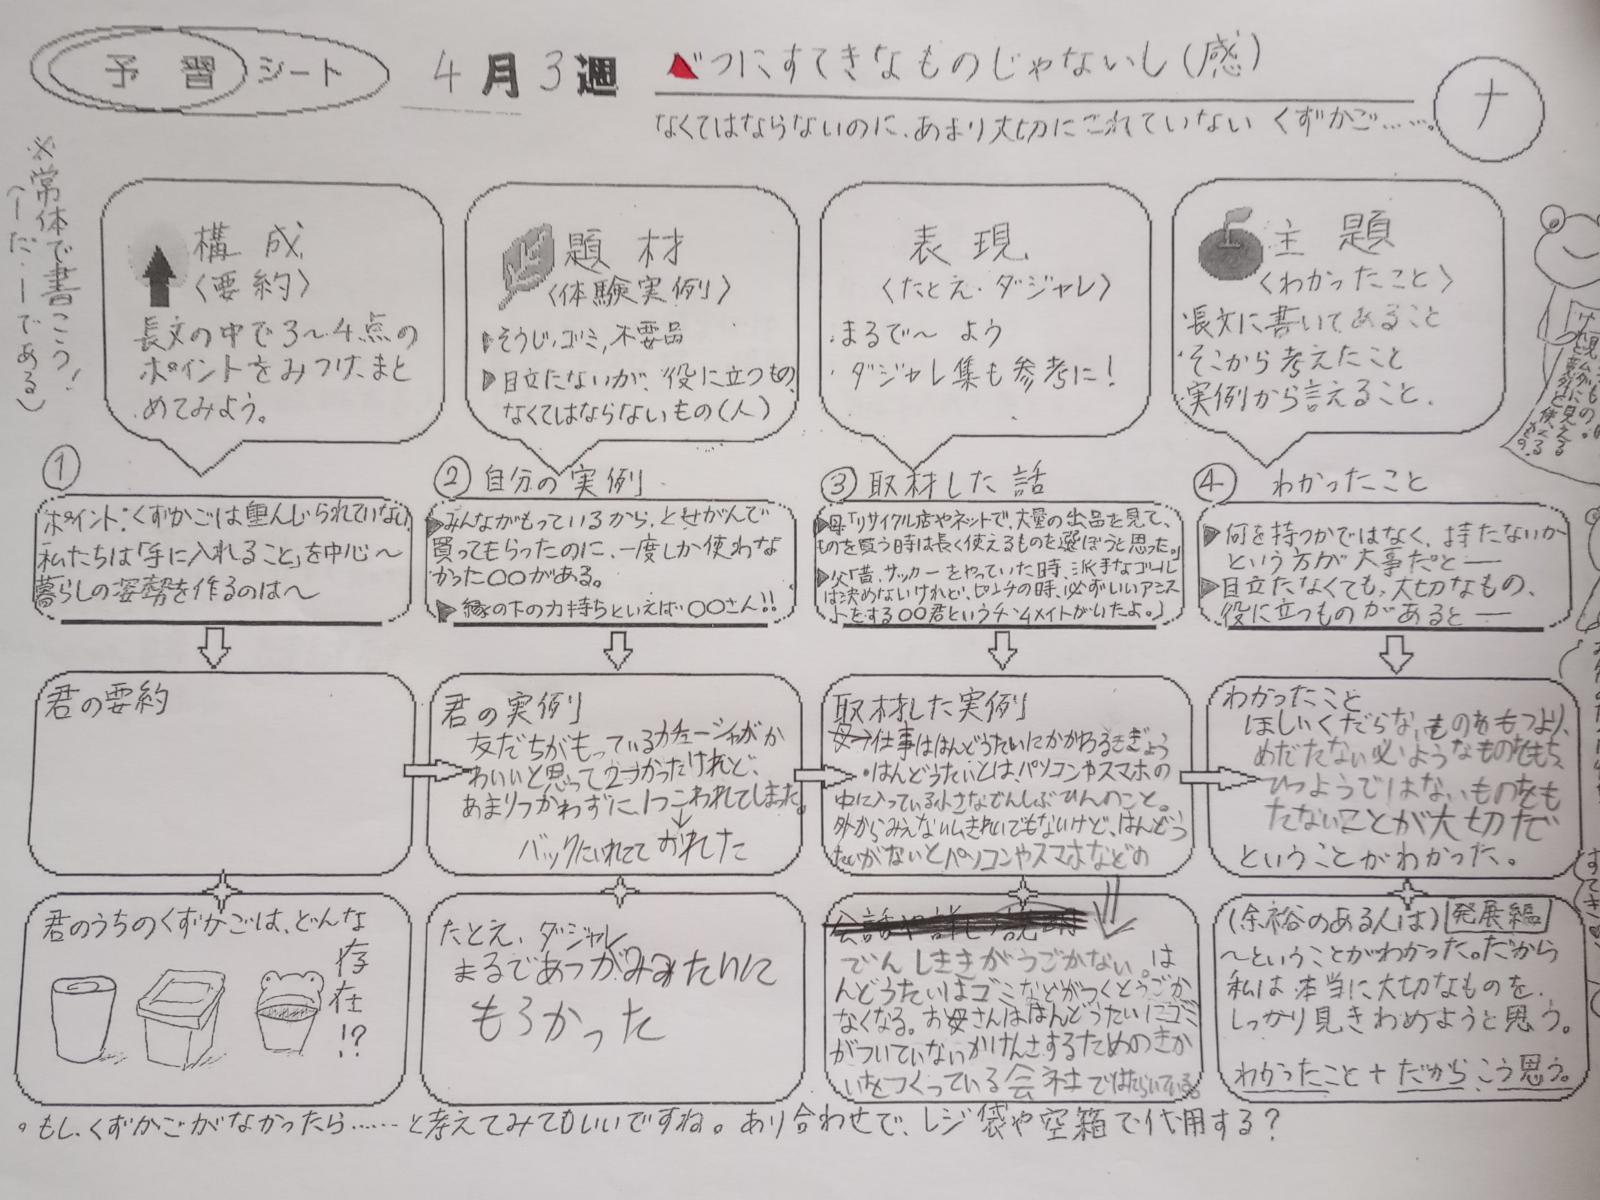 予習シート
4月3週
べつにすてきなものじゃないし(感)
ナ
なくてはならないのに、あまり大切にされていない くずかご……。
※常体で書こう!
(ーだ.ーである)
構成
〈要約〉
長文の中で3〜4点の
ポイントをみつけ、まと
めてみよう。
題材
〈体験実例〉
▶そうじ、ゴミ、不要品
▶目立たないが、役に立つもの、
なくてはならないもの(人)
表現
〈たとえ・ダジャレ〉
・まるで〜 よう
・ダジャレ集も参考に!
主題
〈わかったこと〉
・長文に書いてあること
・そこから考えたこと
・実例から言えること.
①
ポイント:くずかごは重んじられていない
私たちは「手に入れること」を中心〜
暮らしの姿勢を作るのは〜
② 自分の実例
▶みんながもっているから、とせがんで
買ってもらったのに、一度しか使わな
かった〇〇がある。
▶縁の下の力持ちといえば〇〇さん!!
③ 取材した話
▶母「リサイクル店やネットで、大量の出品を見て、
ものを買う時は長く使えるものを選ぼうと思った。」
▶父「昔、サッカーをやっていた時、派手なゴール
は決めないけれど、ピンチの時、必ずいいアシス
トをする〇〇君というチームメイトがいたよ。」
④ わかったこと
▶何を持つかではなく、持たないか
という方が大事だと―
▶目立たなくても、大切なもの、
役に立つものがあると―
君の要約
君の実例
友だちがもっているカチューシャがか
わいいと思って2つかったけれど、
あまりつかわずに、1つこわれてしまった。
バックにいれてて おれた
取材した実例
母→仕事ははんどうたいにかかわるさぎょう
・はんどうたいとは、パソコンやスマホの
中に入っている小さなでんしぶひんのこと。
外からみえないしきれいでもないけど、はんどう
たいがないとパソコンやスマホなどの
わかったこと
ほしいくだらないものをもつより、
めだたない必ようなものをもち
ひつようではないものをも
たないことが大切だ
ということがわかった。
君のうちのくずかごは、どんな
存在!?
たとえ、ダジャレ
まるであつがみみたいに
もろかった
会話や詳しい説明
でんしききがうごかない。は
んどうたいはゴミなどがつくとうごか
なくなる。お母さんははんどうたいにゴミ
がついていないかけんさするためのきか
いをつくっている会社ではたらいている。
(余裕のある人は) 発展編
〜ということがわかった。だから
私は本当に大切なものを、
しっかり見きわめようと思う。
わかったこと + だからこう思う。
。もし、くずかごがなかったら……と考えてみてもいいですね。あり合わせで、レジ袋や空箱で代用する?